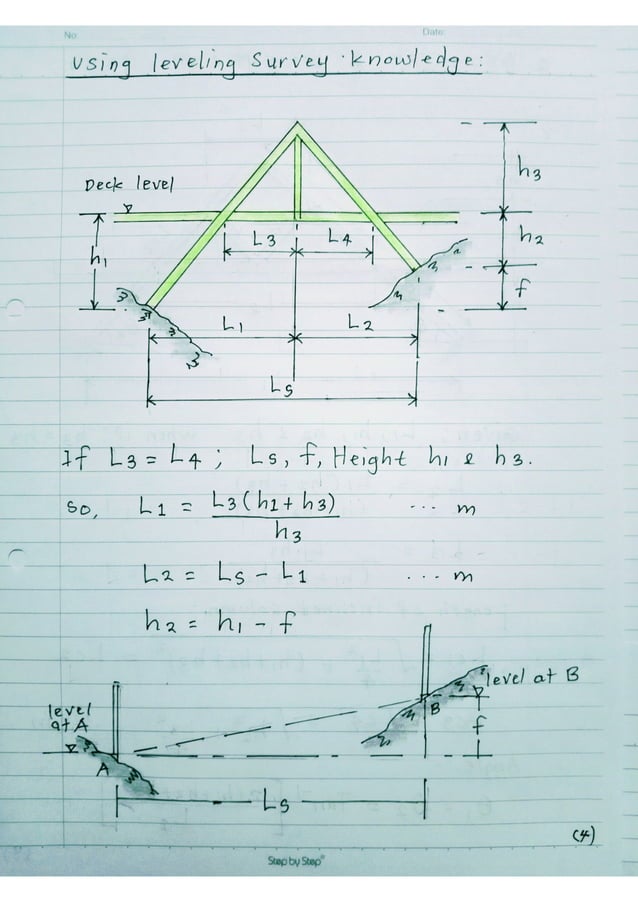 No:
Date:
Using leveling Survey knowledge:
Deck level
h3
h2
h1
L3
L4
f
L1
L2
Ls
If L3 = L4 ; Ls, f, Height h1 & h3.
so, L1 = L3(h1 + h3) / h3 ... m
L2 = Ls - L1 ... m
h2 = h1 - f
level at A
level at B
A
B
f
Ls
(4)
Step by Step®